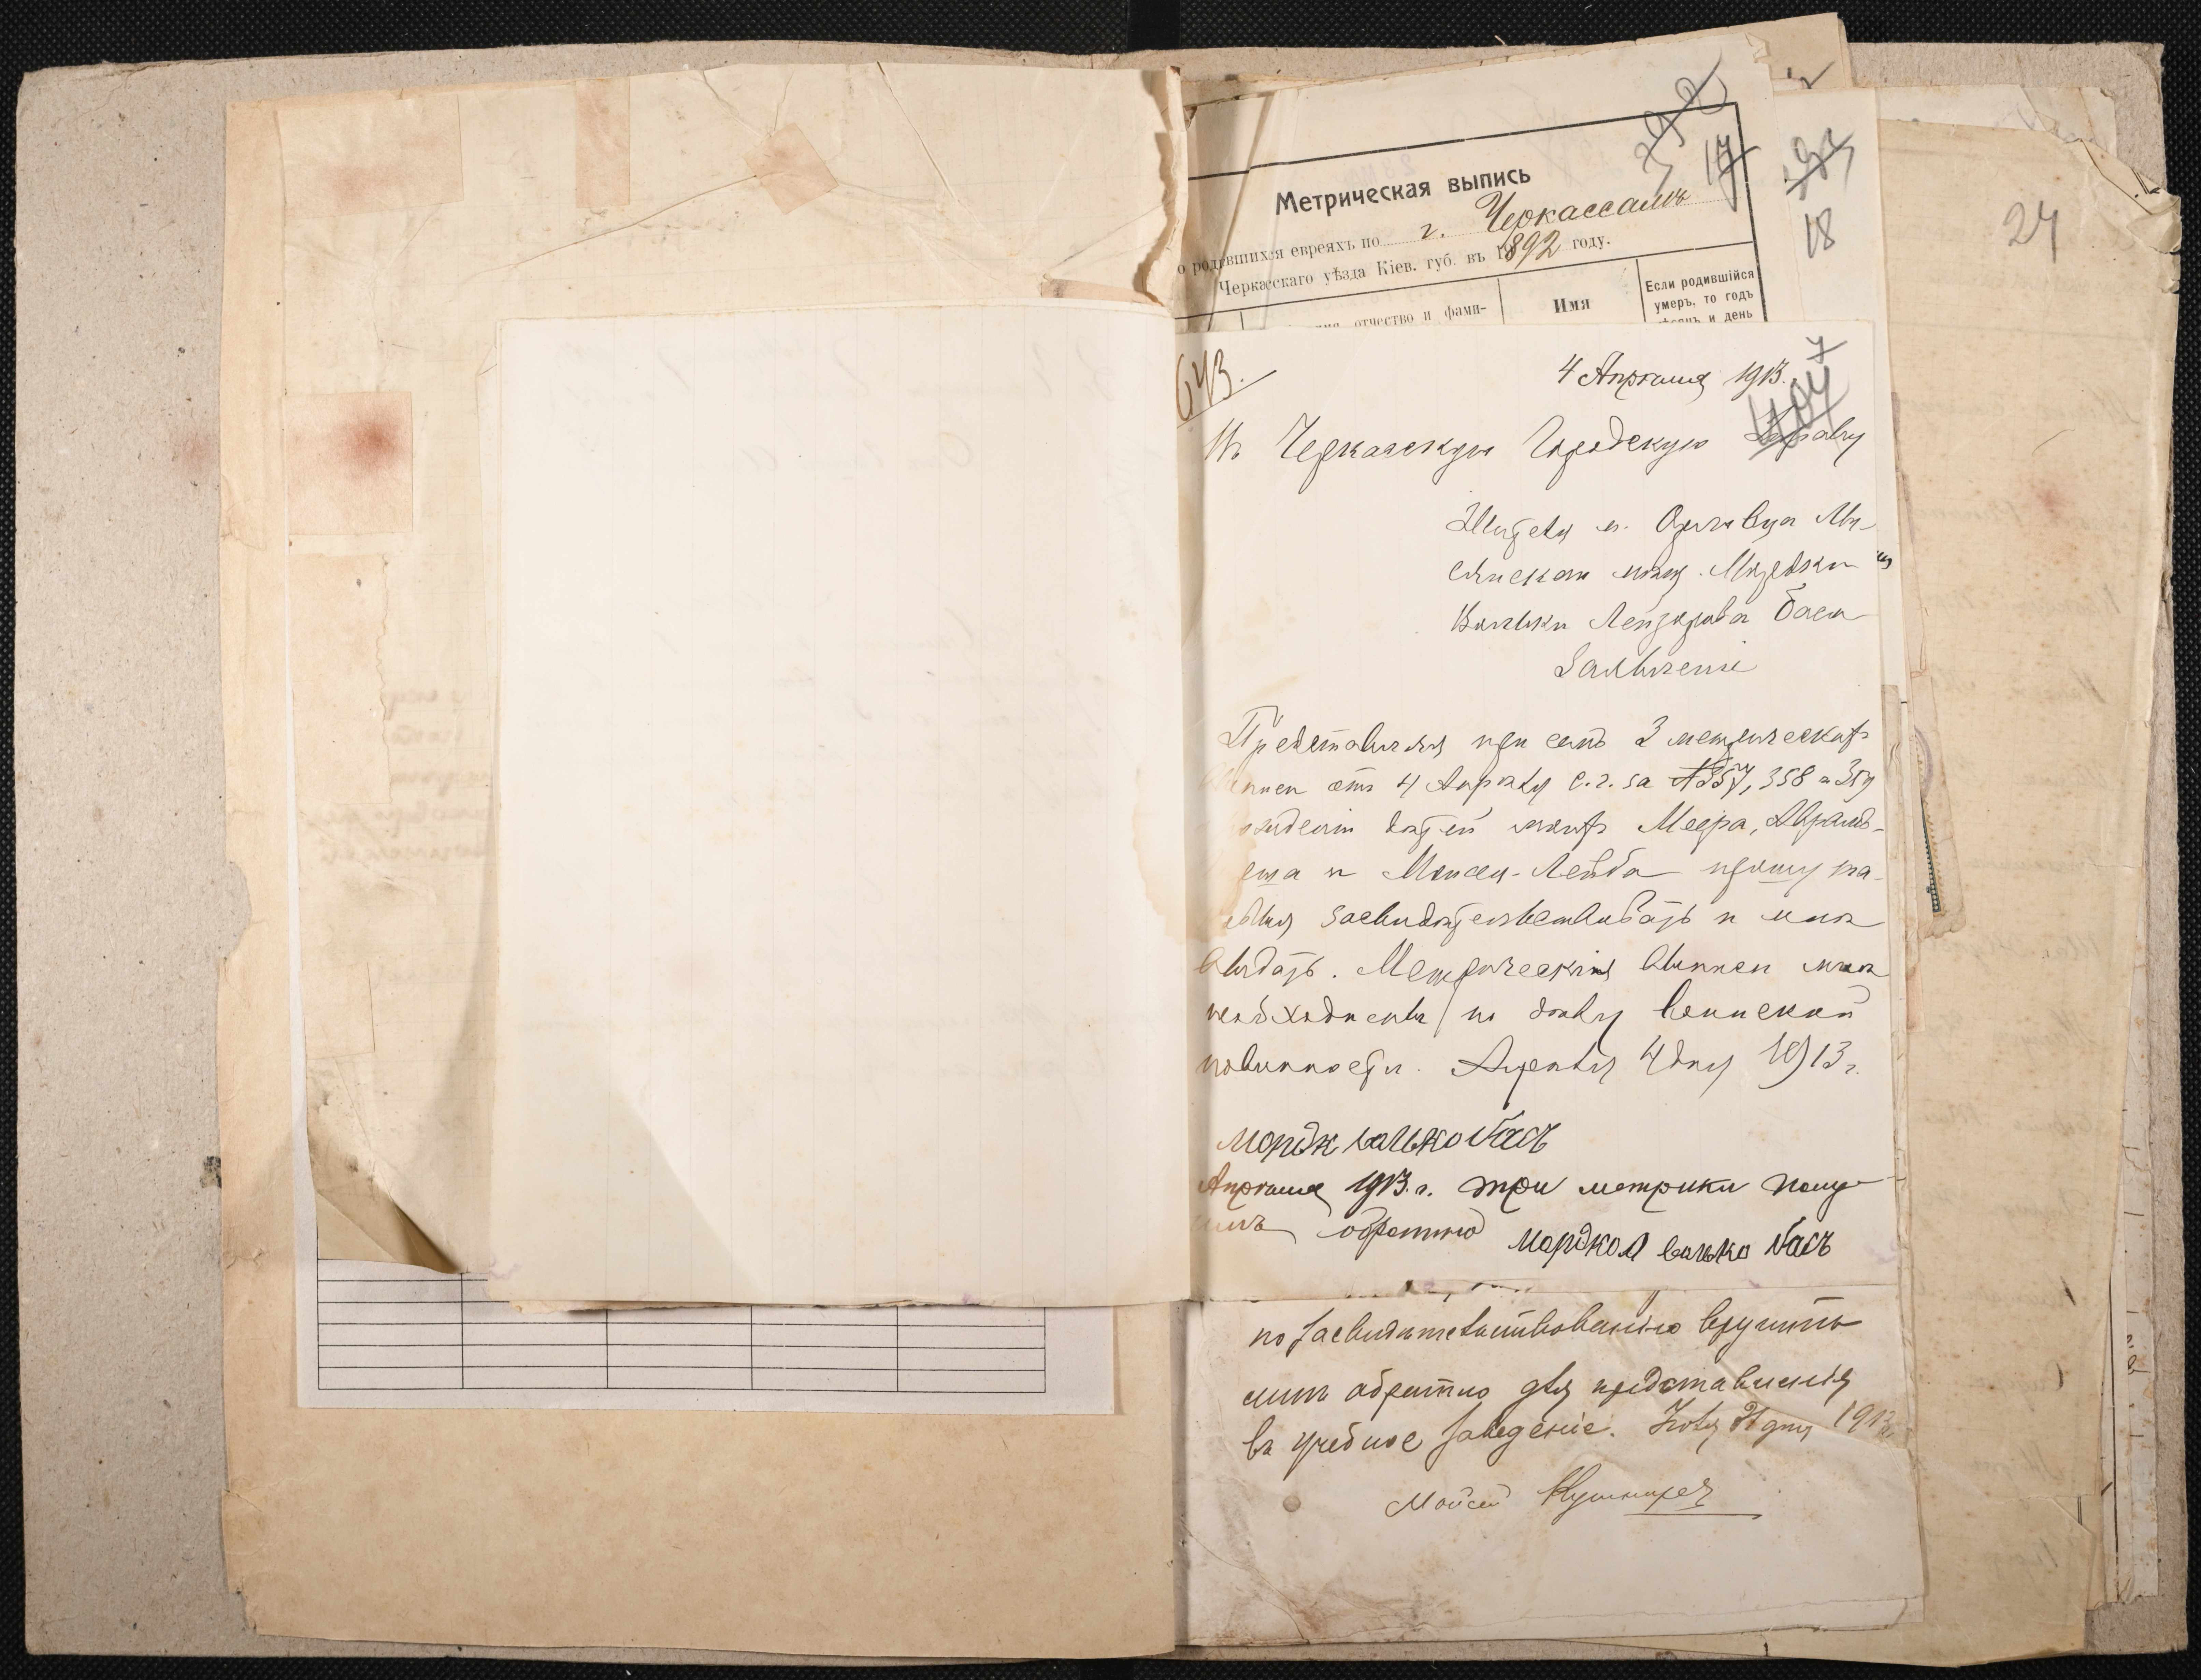 392
17
Метрическая выпись
о родившихся евреяхъ по г. Черкассамъ
Черкасскаго уѣзда Кіев. губ. въ 1892 году.
отчество и фами-
Имя
Если родившійся
умеръ, то годъ
и день
18
24
643.
4 Апрѣля 1913.
7
Въ Черкасскую Городскую Управу
Жителя м. Орловца
Мордки
Волька Лейзорова Баса
Заявленіе
Представляя при семъ 3 метрическихъ
отъ 4 Апрѣля с.г. за № 357, 358 и 359
дѣтей моихъ Меера, Абрамъ-
и Моисея-Лейба прошу та-
засвидѣтельствовать и мнѣ
выдать. Метрическія выписи мнѣ
необходимы по дѣлу воинской
повинности. Апрѣля 4 дня 1913 г.
Мордк Волько Басъ
Апрѣля 1913 г. три метрики полу-
чилъ обратно Мордко Волько Басъ
по засвидѣтельствованію вручить
мнѣ обратно для представленія
въ учебное заведеніе. дня 1913
Мойсей Кушниръ